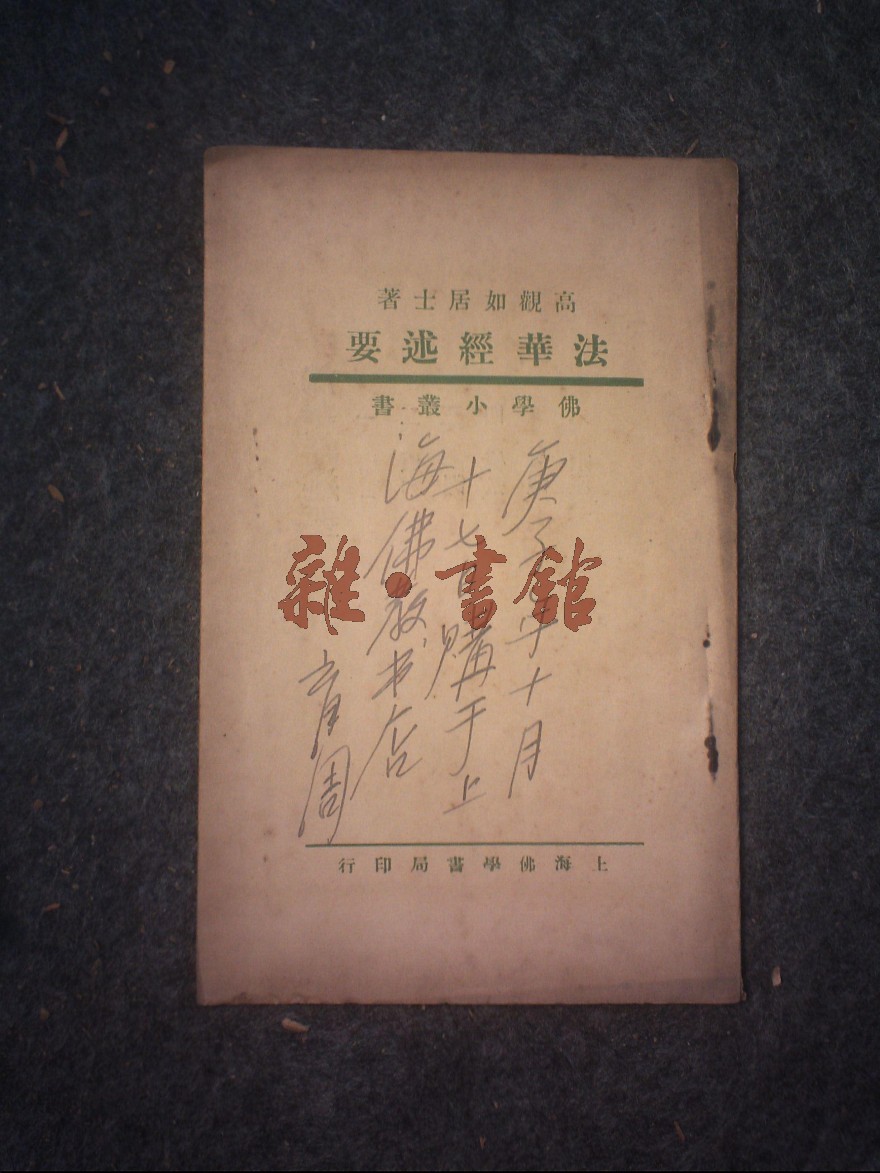 高觀如居士著
法華經述要
佛學小叢書
庚子年十月
十七日購于上
海佛教书店
育周
雜·書館
上海佛學書局印行